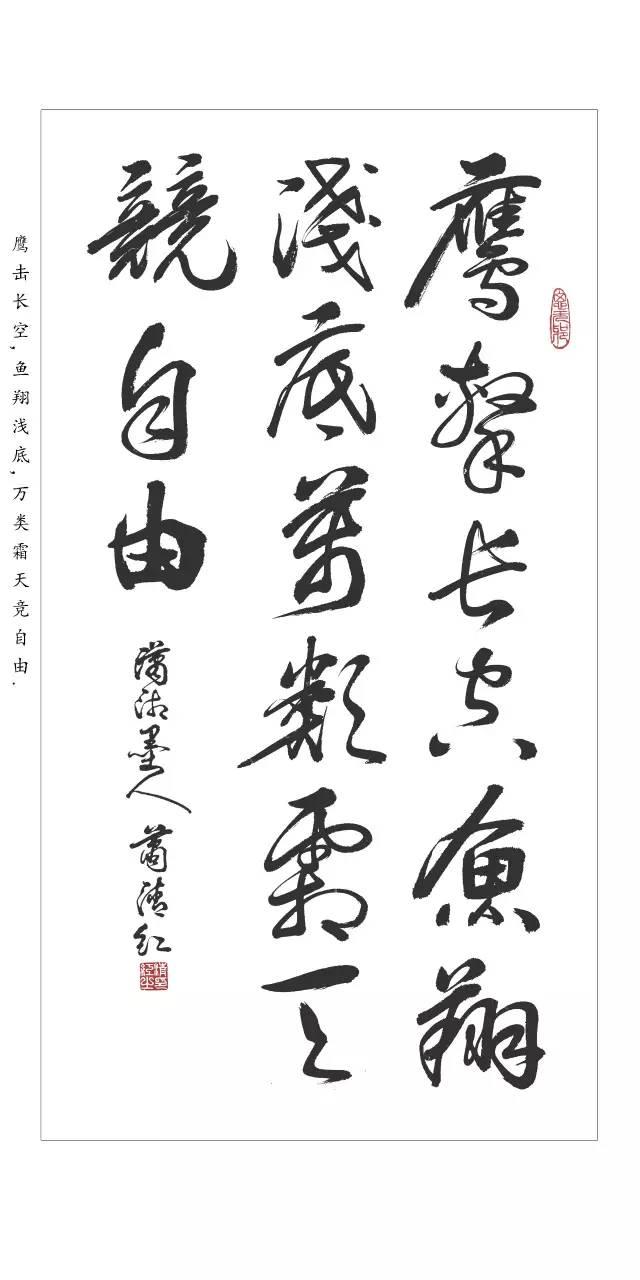 鷹擊长空魚翔
淺底萬類霜天
競自由
瀟湘墨人 蕭清紅
鹰击长空,鱼翔浅底,万类霜天竞自由.